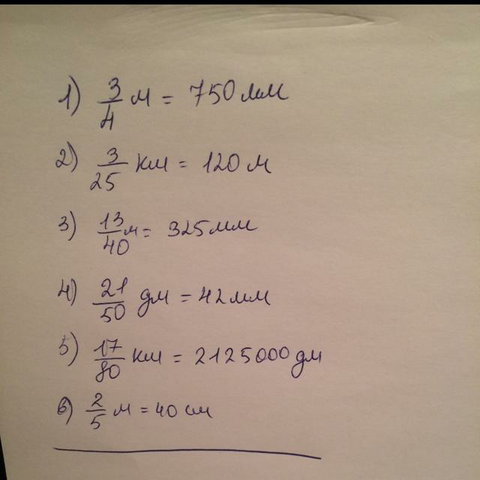 1) 3/4 м = 750 мм
2) 3/25 км = 120 м
3) 13/40 м = 325 мм
4) 21/50 дм = 42 мм
5) 17/80 км = 2125000 дм
6) 2/5 м = 40 см